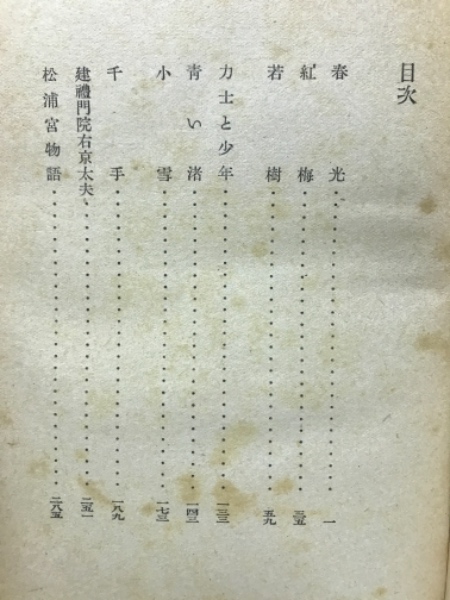 目次
春光・・・・・・・・・・・・・・・・・・・・一
紅梅・・・・・・・・・・・・・・・・・・・・三五
若樹・・・・・・・・・・・・・・・・・・・・五九
力士と少年・・・・・・・・・・・・・・・・・・・・一三三
青い渚・・・・・・・・・・・・・・・・・・・・一四三
小雪・・・・・・・・・・・・・・・・・・・・一七三
千手・・・・・・・・・・・・・・・・・・・・一八九
建禮門院右京太夫・・・・・・・・・・・・・・・・・・・・二五一
松浦宮物語・・・・・・・・・・・・・・・・・・・・二八五